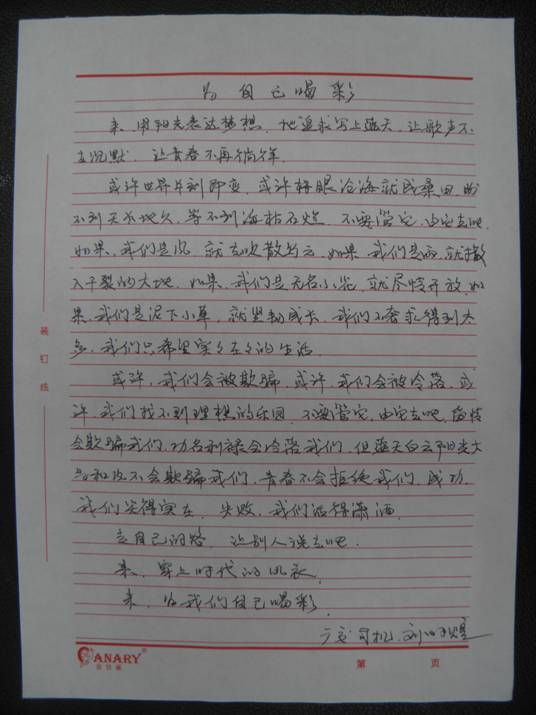 为自己喝彩
来,用阳光表达梦想,把追求写上蓝天,让歌声不
在沉默,让青春不再徜徉。
或许世界片刻即变,或许转眼沧海就成桑田,盼
不到天长地久,等不到海枯石烂,不要管它,由它去吧,
如果,我们是风,就去吹散乌云,如果,我们是雨,就撒
入干裂的大地,如果,我们是无名小花,就尽情开放,如
果,我们是泥下小草,就坚韧成长,我们不奢求得到太
多,我们只希望实实在在的生活。
或许,我们会被欺骗,或许,我们会被冷落,或
许,我们找不到理想的乐园,不要管它,由它去吧,
会欺骗我们,功名利禄会冷落我们,但蓝天白云阳光大
不会欺骗我们,青春不会拒绝我们,成功,
我们笑得实在,失败,我们活得潇洒。
走自己的路,让别人说去吧。
来,穿上时代的风衣,
来,为我们自己喝彩。
司机 刘
装订线
CANARY®
第 页